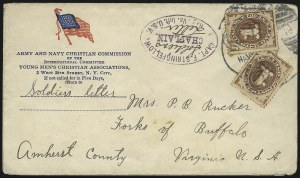 ARMY AND NAVY CHRISTIAN COMMISSION
OF THE
INTERNATIONAL COMMITTEE
YOUNG MEN'S CHRISTIAN ASSOCIATIONS,
3 West 29th Street, N. Y. City,
If not called for in Five Days,
return to
Soldiers letter
CHAPLAIN
Soldiers
Letter
Mrs. P. B. Rucker
Forks of Buffalo
Amherst County
Virginia U.S.A